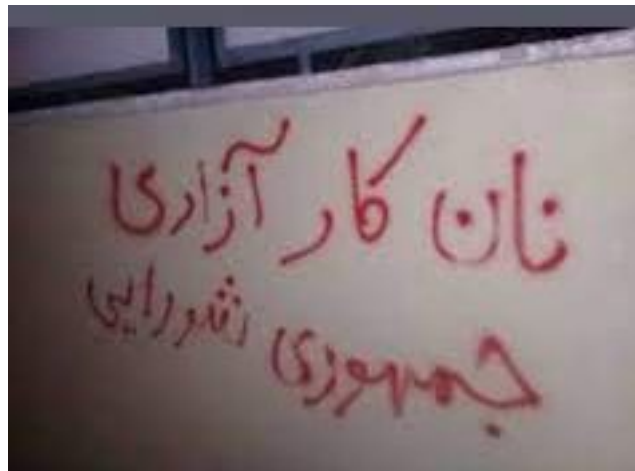 نان کار آزادی
جمهوری شورایی